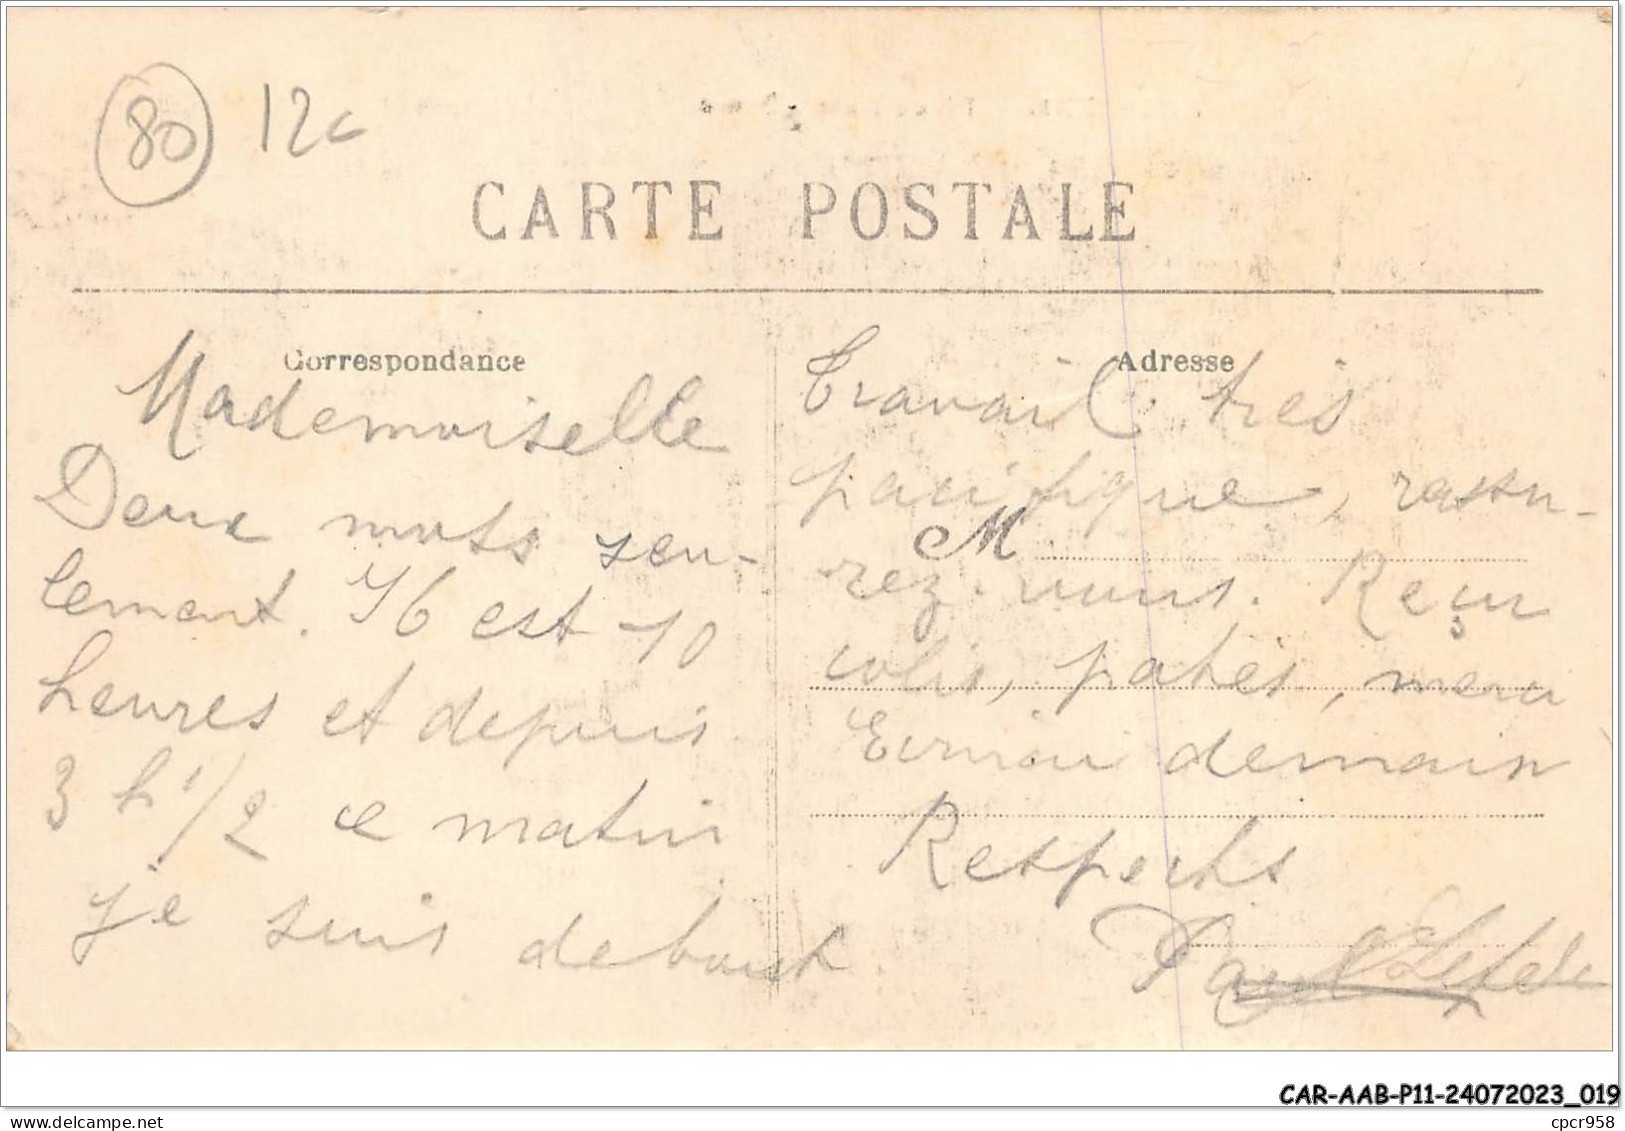 80 12c
CARTE POSTALE
Correspondance
Mademoiselle
Deux mots seu-
lement. Il est 10
heures et depuis
3 h 1/2 ce matin
je suis debout
Adresse
Travail très
pacifique, rassu-
M
rez-vous. Reçu
colis, patés, merci
Ecrirai demain
Respects
Paul
CAR-AAB-P11-24072023_019
delcampe.net
cpcr958